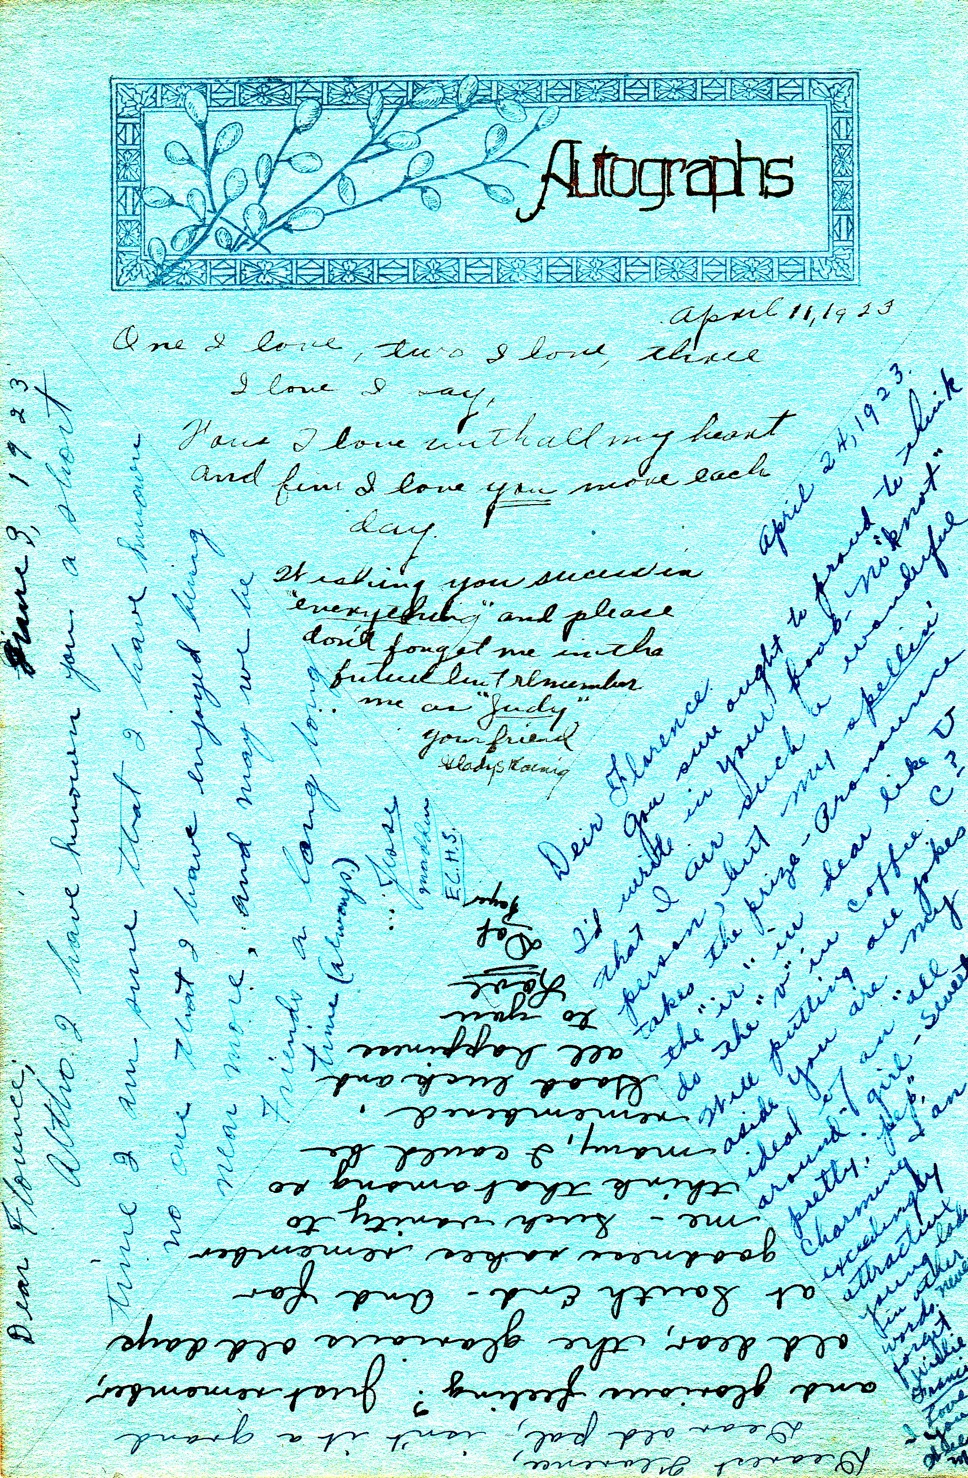 Autographs
April 11, 1923
One I love, two I love, three
I love I say,
Four I love with all my heart
and five I love you more each
day.
Wishing you sucess in
"everything" and please
don't forget me in the
future but remember
me as "Judy"
your friend
Gladys Koenig
June 8, 1923
Dear Florence,
Altho I have known you a short
time I am sure that I have known
no one that I have enjoyed being
near more, and may we be
Friends a long long
time (always)
Rose
E.C.H.S.
April 24, 1923.
Deir Florence.
You sure ought to proud to think
I'd write in your book - no "knot"
that I air such a wonderful
person, but my spellin'
takes the prize - Pronounce
the "ir" in dear like U
do the "v" in coffie. C?
Well putting all jokes
aside you are my
ideal of an "all
around" girl - sweet
pretty, "pep,"
charming & an
exceedingly
attractive
young lady
in other
words. never
forget
Francis
Love
you
Dearest Florence,
Dear old pal, isn't it a grand
and glorious feeling? Just remember,
old dear, the glorious old days
at South End - And for
goodness sakes remember
me - Such vanity to
think that among so
many, I could be
remembered.
Good luck and
all happiness
to you
Love
Dot